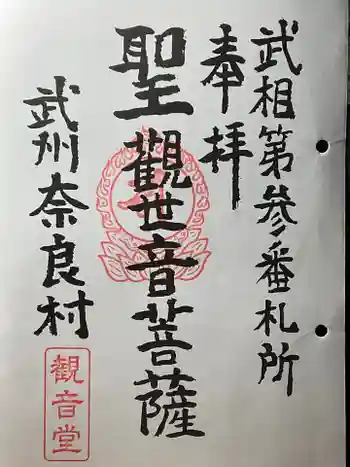 武相第参番札所
奉拝
聖觀世音菩薩
武州奈良村
觀音堂